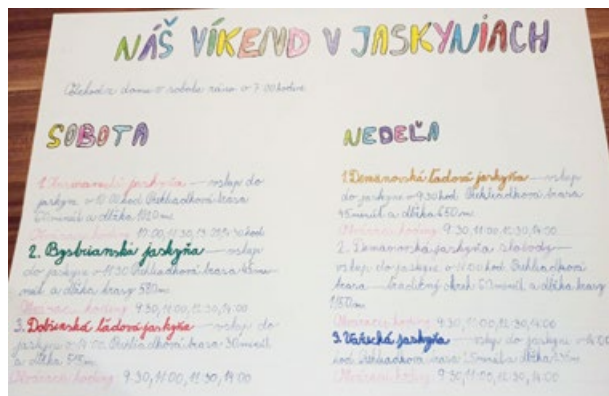 NÁŠ VÍKEND V JASKYNIACH
Odchod z domu v sobotu ráno o 7.00 hodine
SOBOTA
1. jaskyňa vstup do
jaskyne o 10.00 hod. Prehliadková trasa
60 minút a dĺžka
Otváracie hodiny
2. Bystrianska jaskyňa vstup
do jaskyne o 11.30 Prehliadková trasa 45 mi-
nút a dĺžka trasy 580m
Otváracie hodiny 9.30, 11.00, 12.30, 14.00
3. Dobšinská ľadová jaskyňa vstup do
jaskyne o 14.00. Prehliadková trasa 30 minút
a dĺžka
Otváracie hodiny 9.30, 11.00, 12.30, 14.00
NEDEĽA
1. Demänovská ľadová jaskyňa vstup
do jaskyne o 9.30 hod. Prehliadková trasa
45 minút a dĺžka 650m
Otváracie hodiny 9.30, 11.00, 12.30, 14.00
2. Demänovská jaskyňa slobody
vstup do jaskyne o 11.00 hod. Prehliadková
trasa tradičný okruh 60 minút a dĺžka trasy
Otváracie hodiny 9.30, 11.00, 12.30, 14.00
3. Važecká jaskyňa vstup do jaskyne o 14.00
hod. Prehliadková trasa 25 minút a dĺžka
Otváracie hodiny 9.30, 11.00, 12.30, 14.00